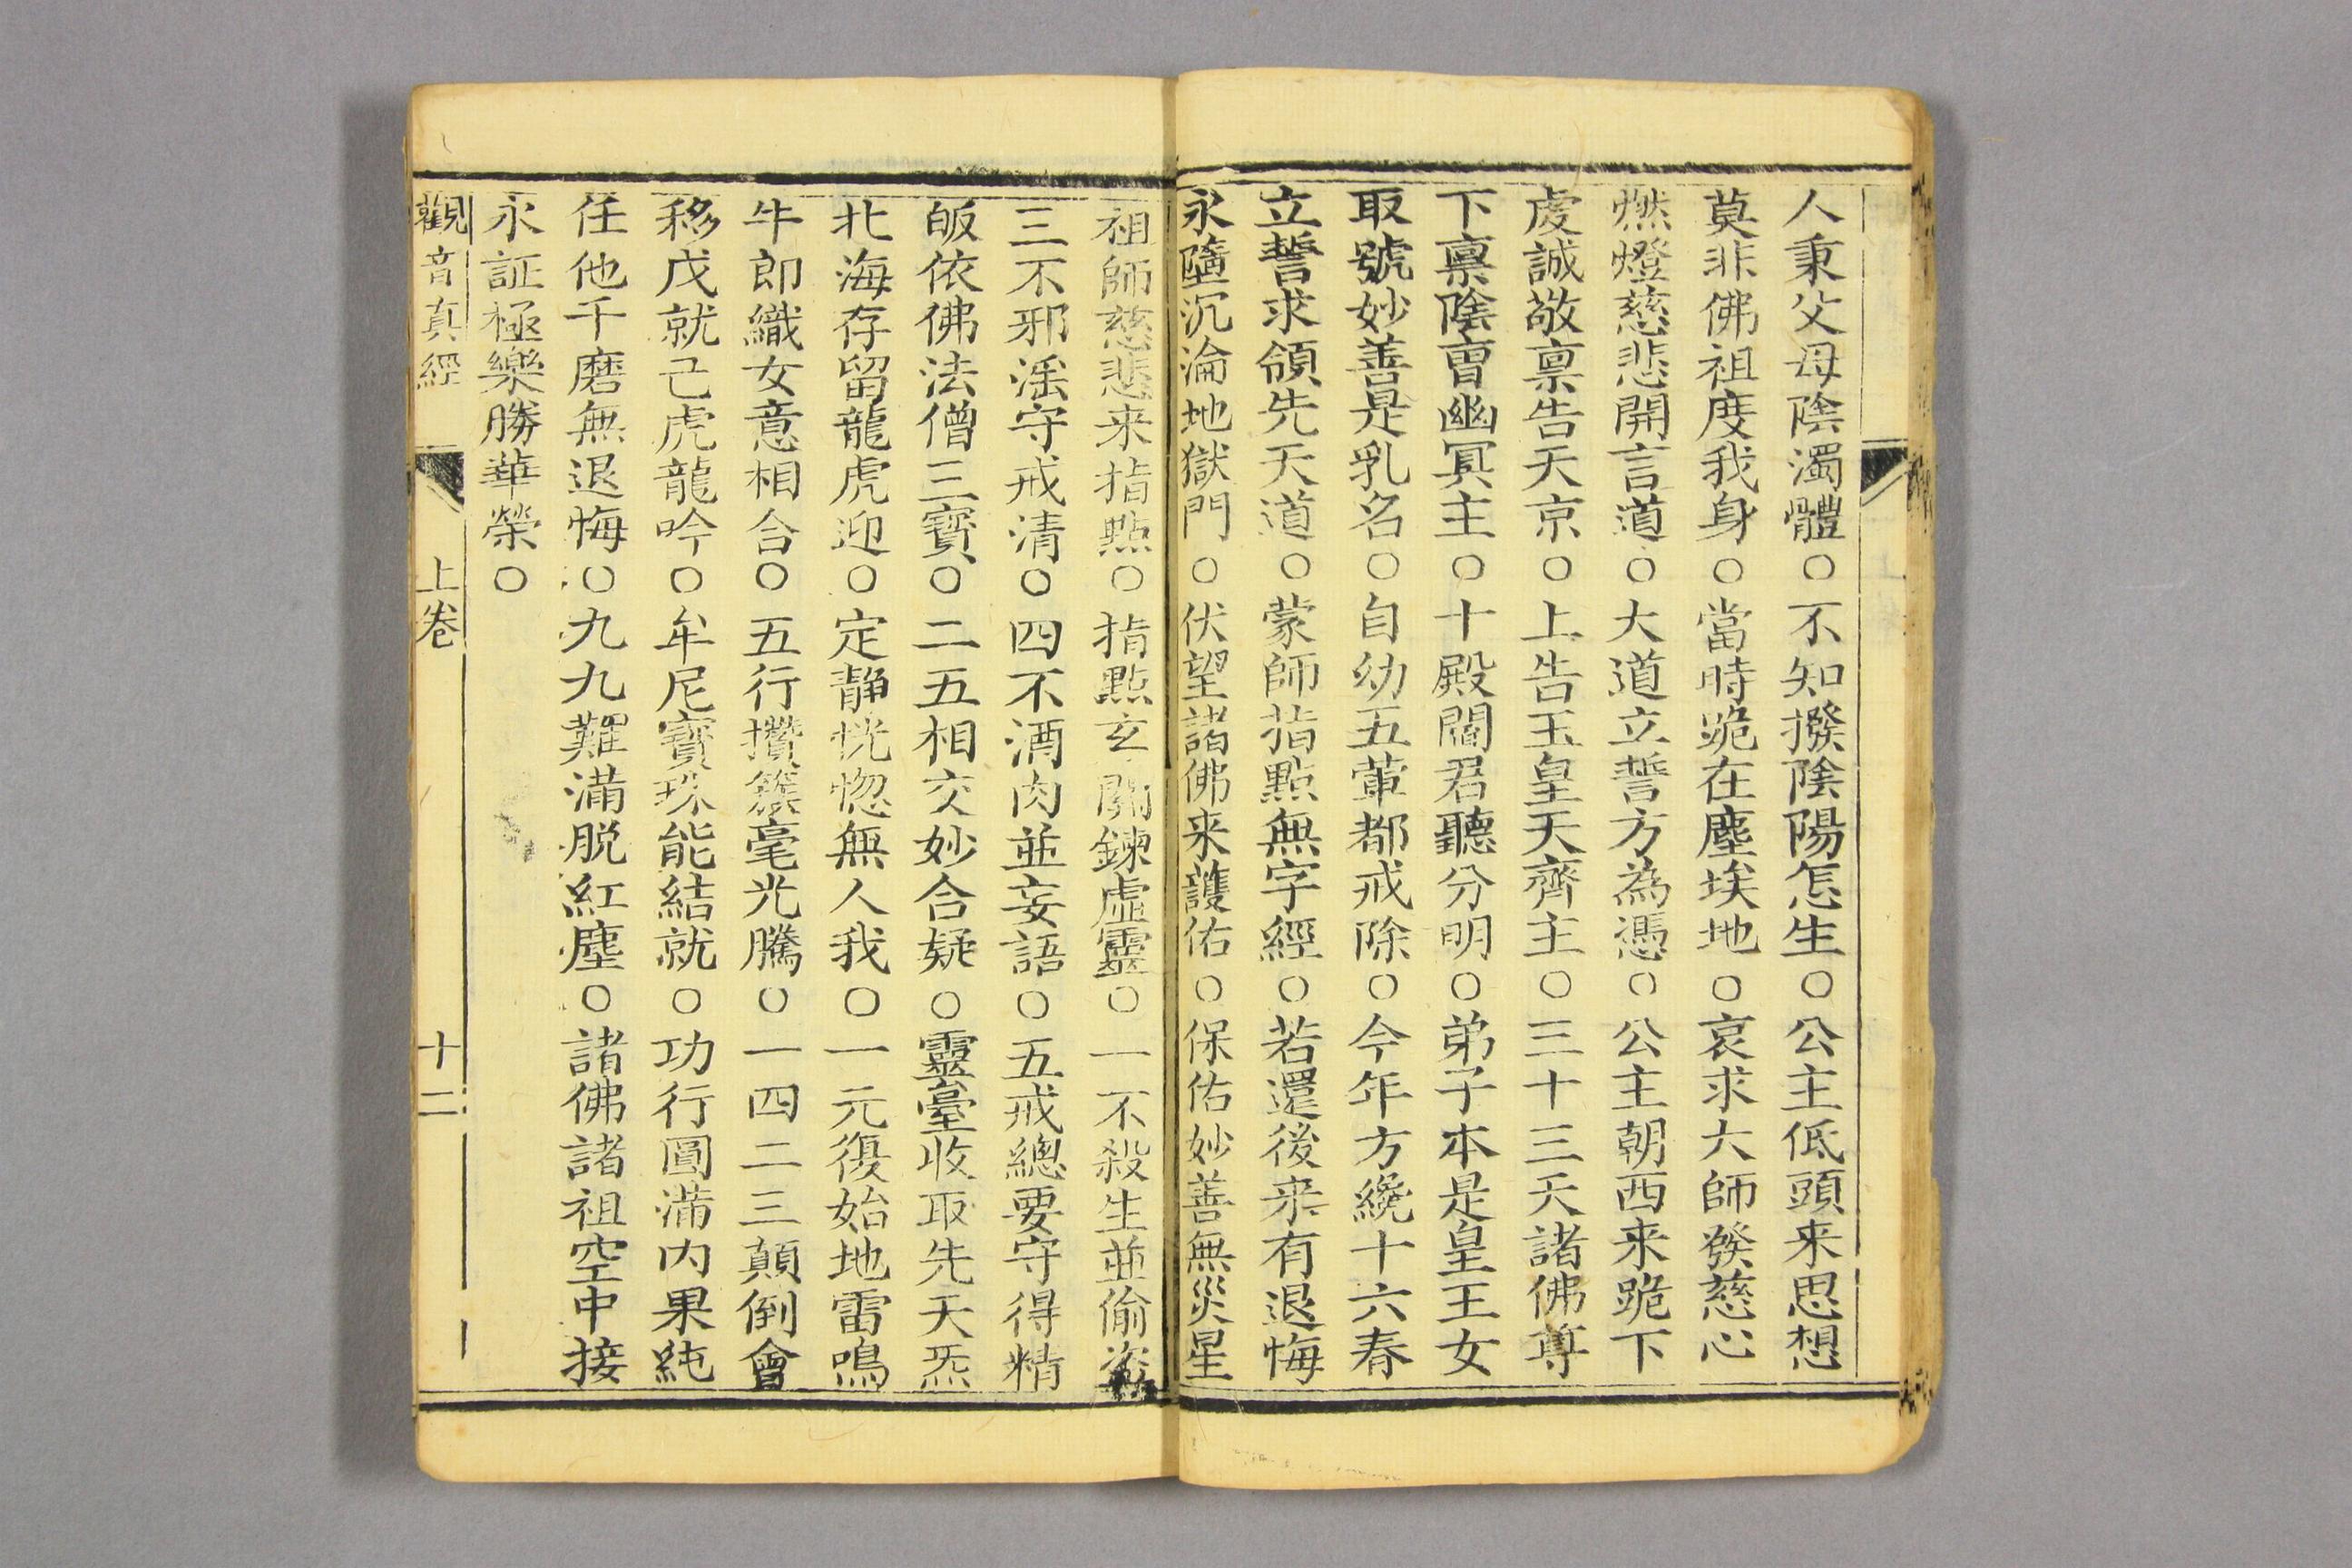 人秉父母陰濁體○不知撥陰陽怎生○公主低頭来思想
莫非佛祖度我身○當時跪在塵埃地○哀求大師發慈心
燃燈慈悲開言道○大道立誓方為憑○公主朝西来跪下
虔誠敬禀告天京○上告玉皇天齊主○三十三天諸佛尊
下禀陰曺幽冥主○十殿閻君聽分明○弟子本是皇王女
取號妙善是乳名○自幼五葷都戒除○今年方纔十六春
立誓求領先天道○蒙師指點無字經○若還後来有退悔
永墮沉淪地獄門○伏望諸佛来護佑○保佑妙善無災星
祖師慈悲来指點○指點玄關鍊虛靈○一不殺生並偷盗
三不邪滛守戒清○四不酒肉並妄語○五戒總要守得精
皈依佛法僧三寶○二五相交妙合疑○靈臺收取先天炁
北海存留龍虎迎○定静恍惚無人我○一元復始地雷鳴
牛郎織女意相合○五行攢簇毫光騰○一四二三顛倒會
移戊就己虎龍吟○牟尼寶珠能結就○功行圓满内果純
任他千磨無退悔○九九難满脱紅塵○諸佛諸祖空中接
永証極樂勝華榮○
觀音真經 上卷 十二